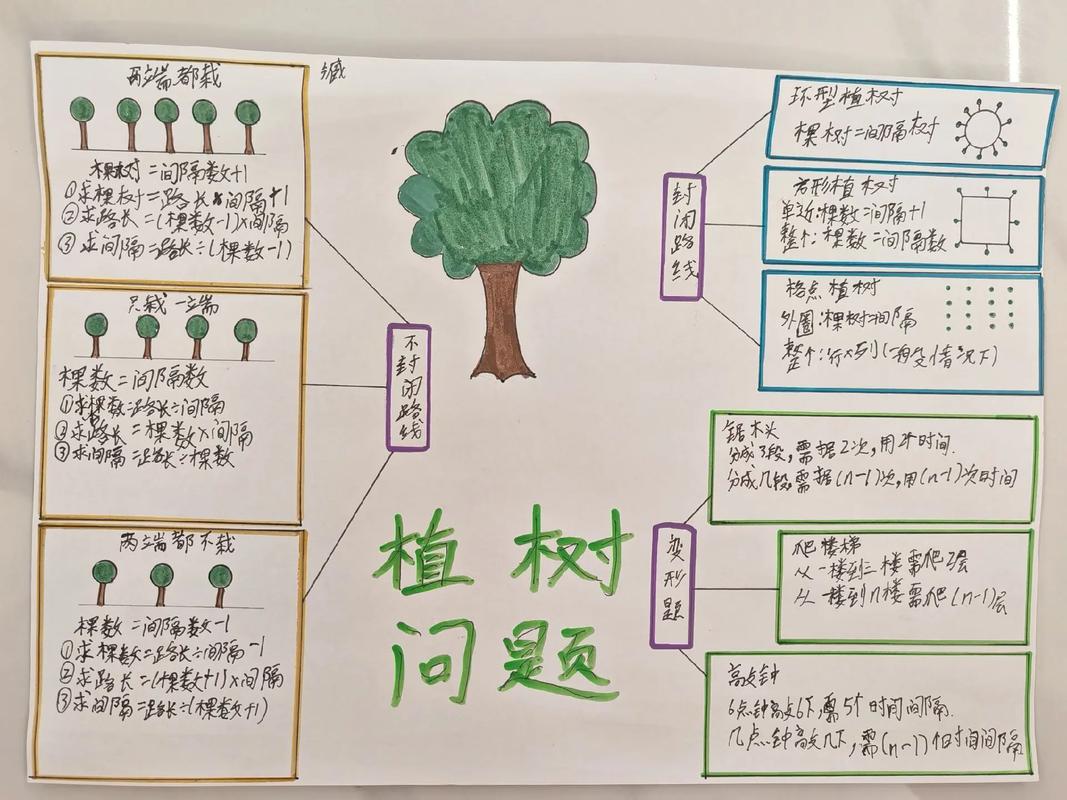 两端都栽
棵树=间隔数+1
①求棵树=路长÷间隔+1
②求路长=(棵数-1)×间隔
③求间隔=路长÷(棵数-1)
只栽一端
棵数=间隔数
①求棵数=路长÷间隔
②求路长=棵数×间隔
③求间隔=路长÷棵数
两端都不栽
棵数=间隔数-1
①求棵数=路长÷间隔-1
②求路长=(棵数+1)×间隔
③求间隔=路长÷(棵数+1)
不封闭路线
植树
问题
封闭路线
环型植树
棵树=间隔树
方形植树
单边:棵数=间隔+1
整个:棵数=间隔数
格点植树
外圈:棵树=间隔
整个:行×列(一般情况下)
变形题
锯木头
分成3段,需据2次,用2个时间.
分成几段,需据(n-1)次,用(n-1)次时间
爬楼梯
从一楼到三楼需爬2层
从一楼到n楼需爬(n-1)层
敲钟
6点钟敲6下,需5个时间间隔.
几点钟敲几下,需(n-1)个时间间隔